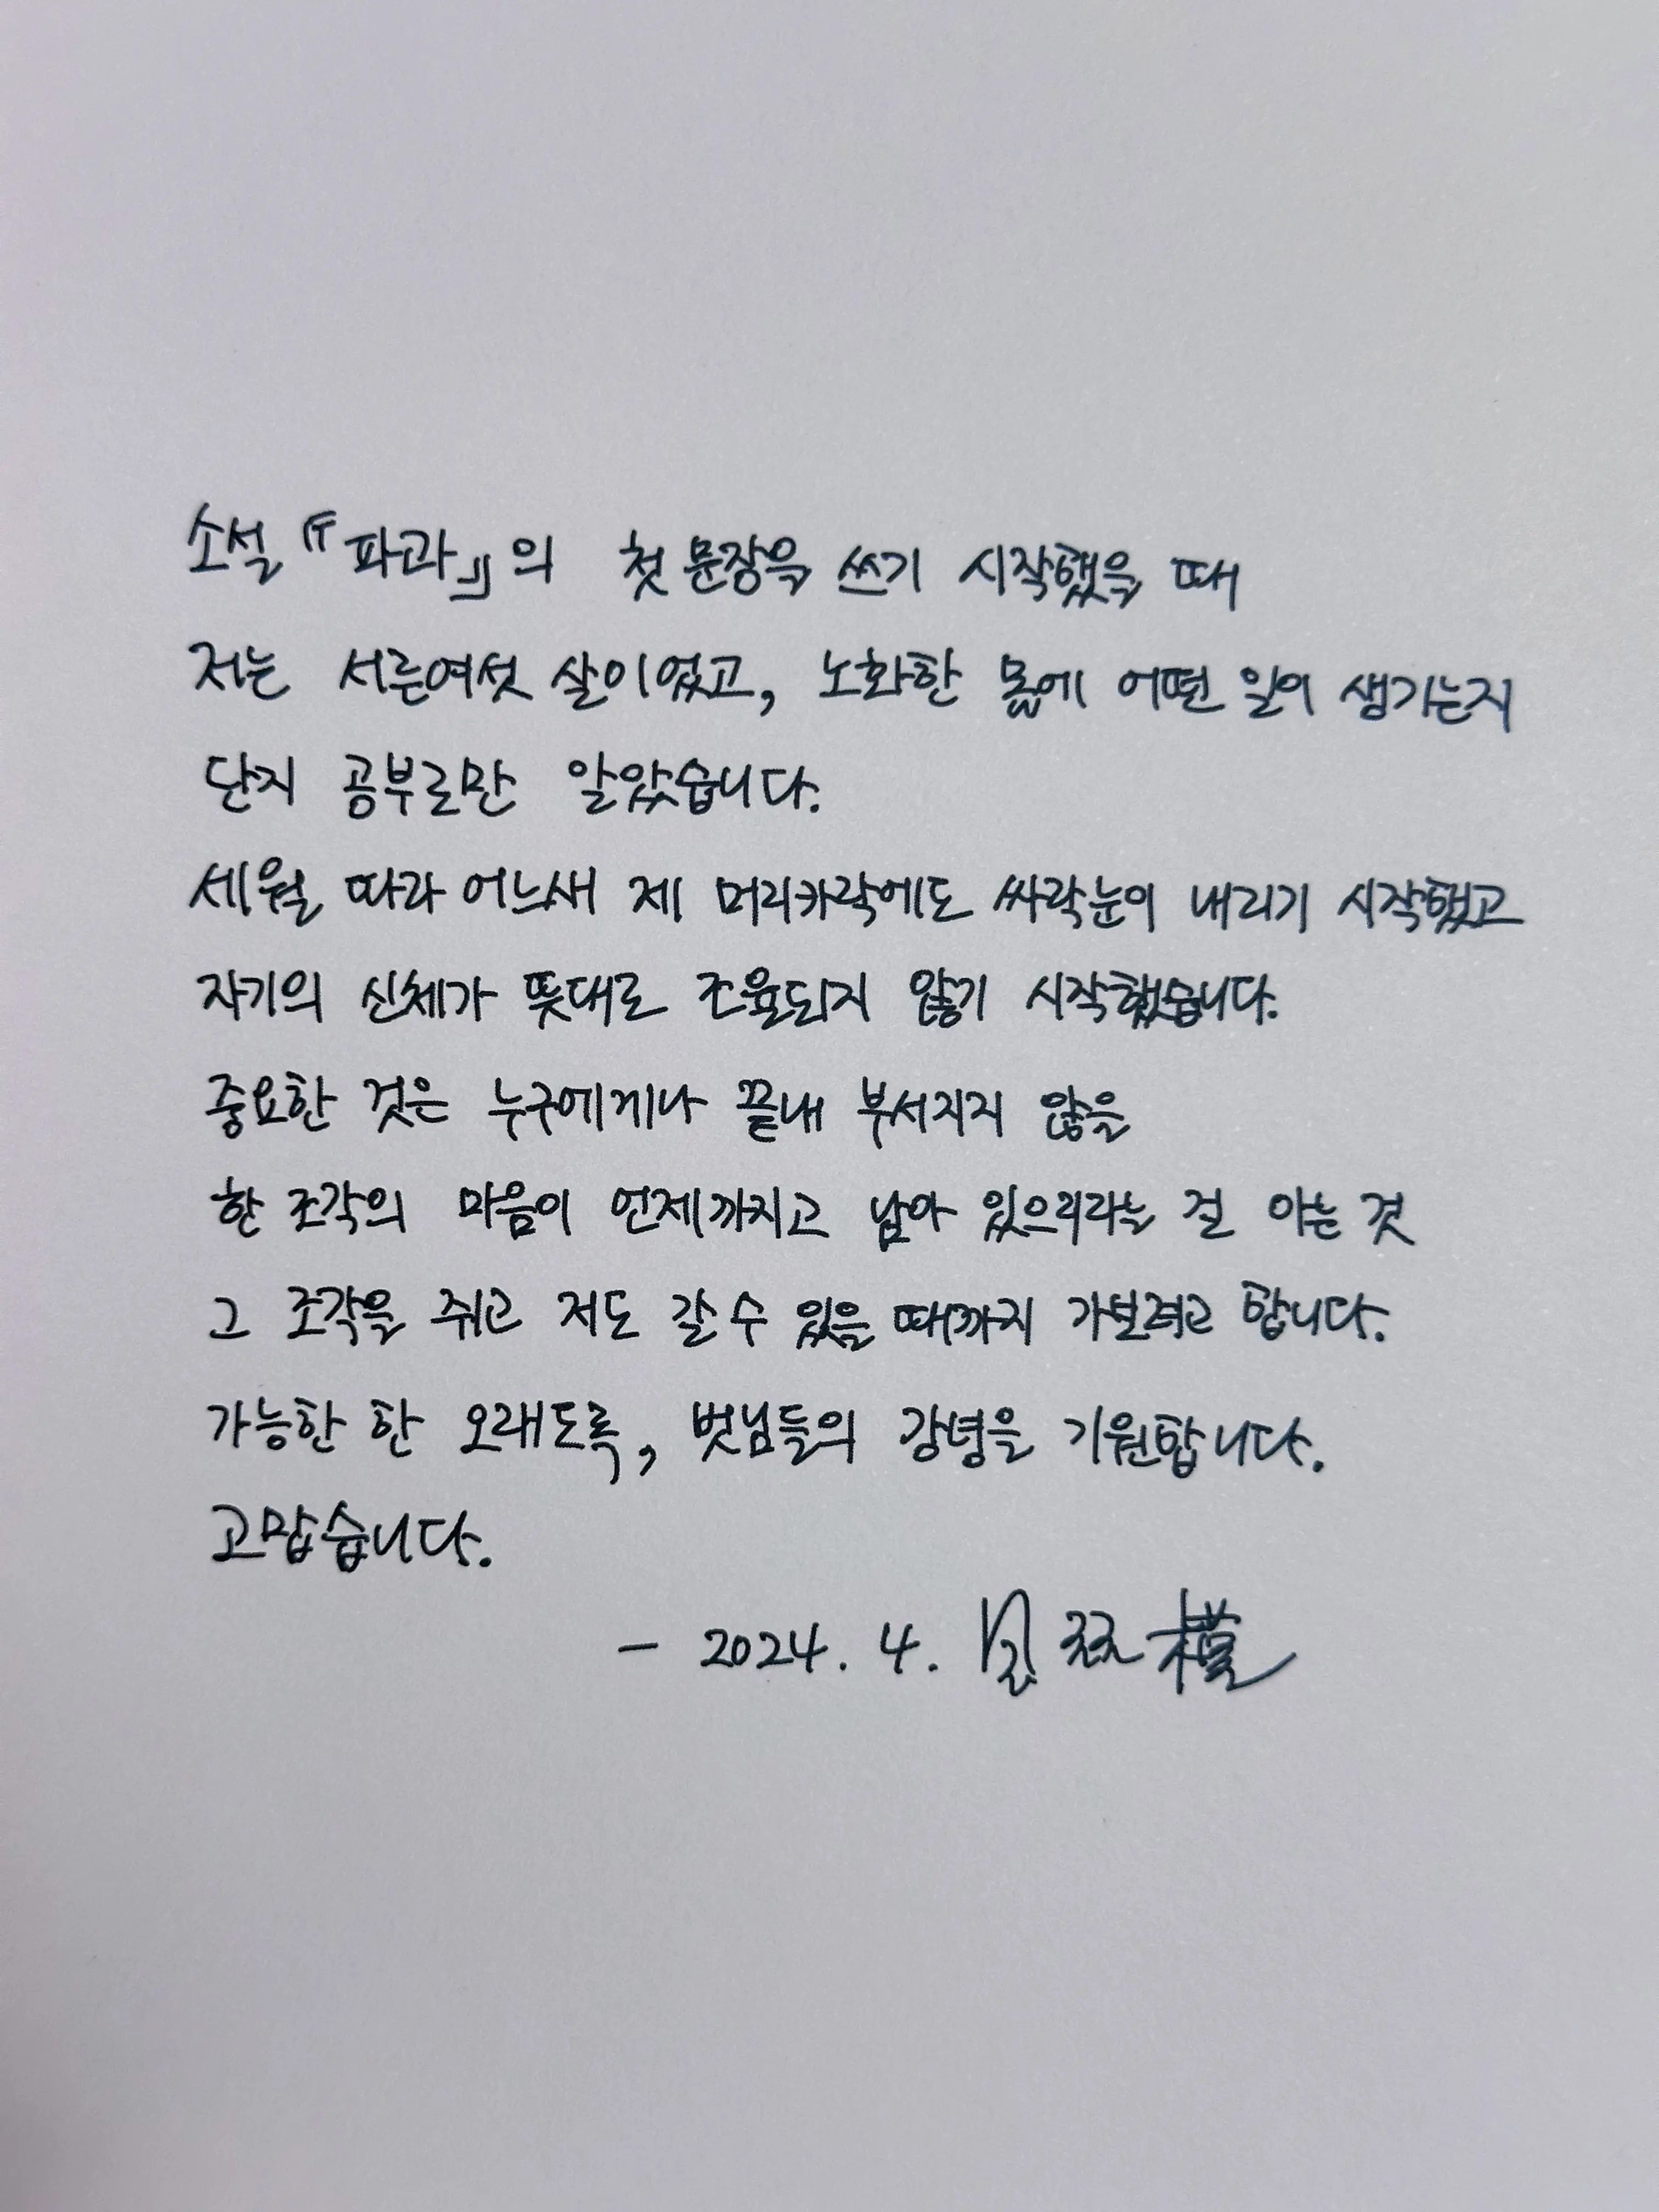 소설 『파과』의 첫 문장을 쓰기 시작했을 때
저는 서른여섯 살이었고, 노화한 몸에 어떤 일이 생기는지
단지 공부로만 알았습니다.
세월 따라 어느새 제 머리카락에도 싸락눈이 내리기 시작했고
자기의 신체가 뜻대로 조율되지 않기 시작했습니다.
중요한 것은 누구에게나 끝내 부서지지 않을
한 조각의 마음이 언제까지고 남아 있으리라는 걸 아는 것
그 조각을 쥐고 저도 갈 수 있을 때까지 가보려고 합니다.
가능한 한 오래도록, 벗님들의 강녕을 기원합니다.
고맙습니다.
- 2024. 4.